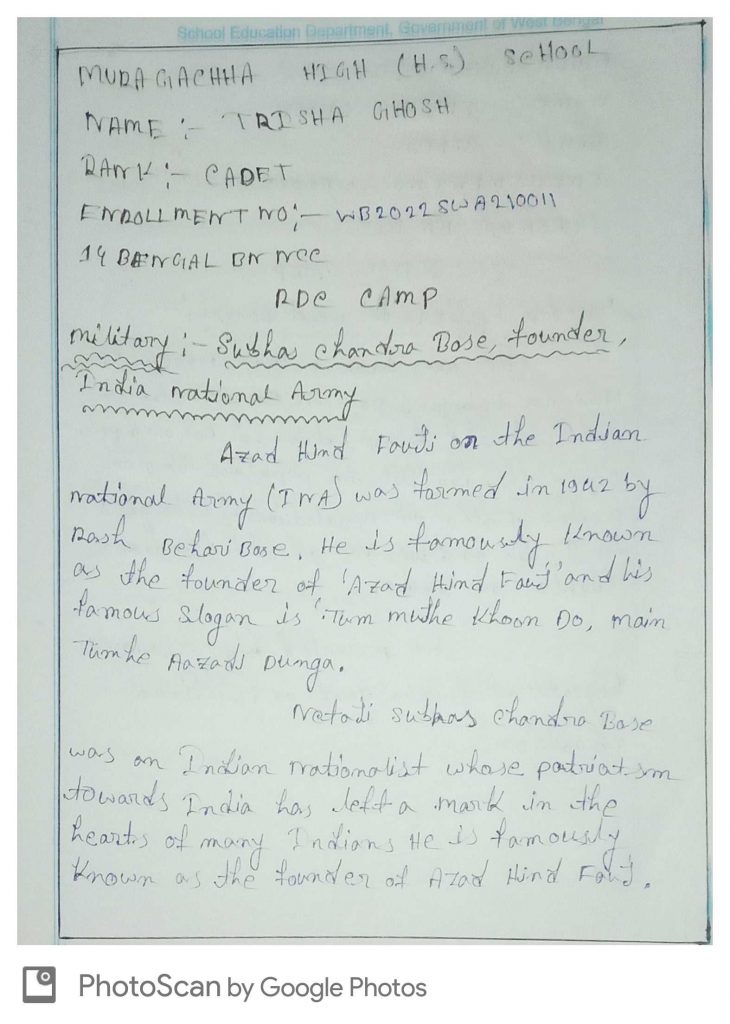 School Education Department, Government of West Bengal
MURAGACHHA HIGH (H.S.) SCHOOL
NAME :- TRISHA GHOSH
RANK :- CADET
ENROLLMENT NO :- WB2022SWA210011
14 BENGAL BN NCC
RDC CAMP
Military :- Subhas Chandra Bose, founder,
India National Army
Azad Hind Fauj on the Indian
National Army (INA) was formed in 1942 by
Rash Behari Bose. He is famously Known
as the founder of 'Azad Hind Fauj' and his
famous Slogan is 'Tum mujhe Khoon Do, main
Tumhe Aazadi Dunga.
Netaji Subhas Chandra Bose
was an Indian Nationalist whose patriotism
towards India has left a mark in the
hearts of many Indians He is famously
Known as the founder of Azad Hind Fauj.
PhotoScan by Google Photos